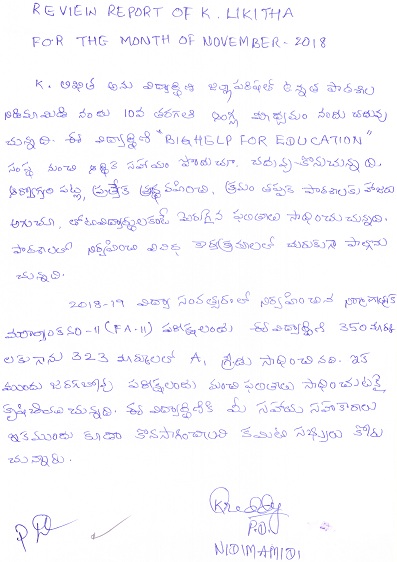 REVIEW REPORT OF K. LIKITHA
FOR THE MONTH OF NOVEMBER - 2018
K. లిఖిత అను విద్యార్థిని జిల్లాపరిషత్ ఉన్నత పాఠశాల
నిడిమామిడి నందు 10వ తరగతి ఇంగ్లీషు మాధ్యమం నందు చదువు
చున్నది. ఈ విద్యార్థిని "BIGHELP FOR EDUCATION"
సంస్థ నుంచి ఆర్థిక సహాయం పొందుచూ చదువుకొనుచున్నది.
పట్ల, ప్రత్యేక శ్రద్ధ వహించి, క్రమం తప్పక పాఠశాలకు హాజరు
అగుచూ, తోటివిద్యార్థులకంటే మెరుగైన ఫలితాలు సాధించుచున్నది.
పాఠశాలలో నిర్వహించి వివిధ కార్యక్రమాలలో చురుకుగా పాల్గొను
చున్నది.
2018-19 విద్యా సంవత్సరంలో నిర్వహించిన నిర్మాణాత్మక
మూల్యాంకనం-II (FA-II) పరీక్షలందు ఈ విద్యార్థిని 350 మార్కు
లకుగాను 323 మార్కులతో A1 గ్రేడు సాధించినది. ఇక
ముందు జరగబోవు పరీక్షలందు మంచి ఫలితాలు సాధించుటకై
కృషి చేయుచున్నది. ఈ విద్యార్థినికి మీ సహాయ సహకారాలు
ఇకముందు కూడా కొనసాగించాలని కమిటి సభ్యులు కోరు
చున్నారు.
K Reddy
P.D.N
NIDIMAMIDI